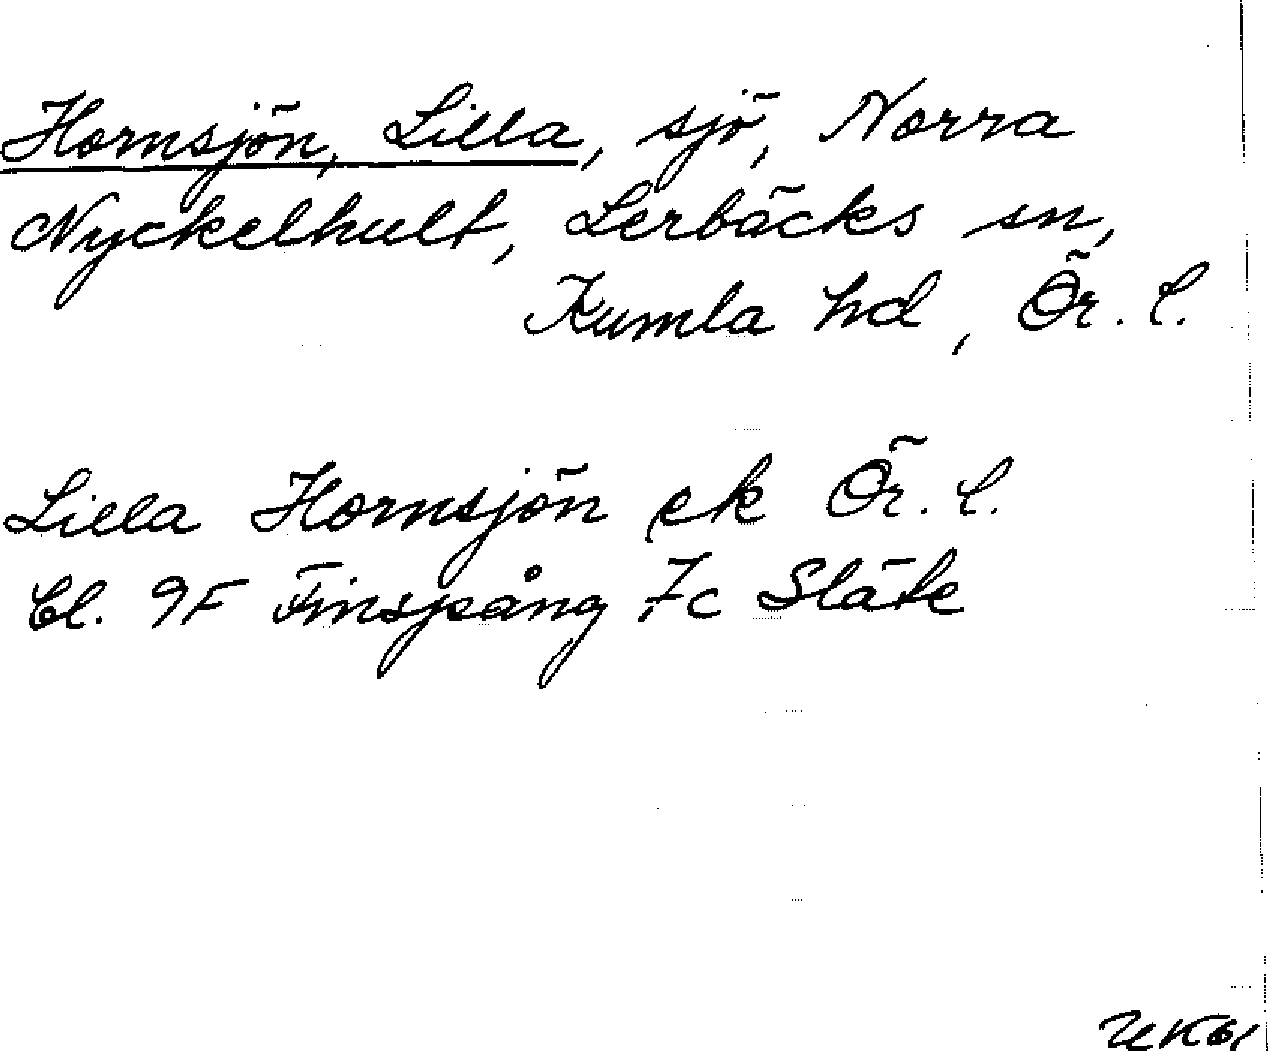 Hornsjön, Lilla, sjö, Norra
Nyckelhult, Lerbäcks sn,
Kumla hd, Ör. l.
Lilla Hornsjön ek Ör. l.
Bl. 9F Finspång 7c Släte